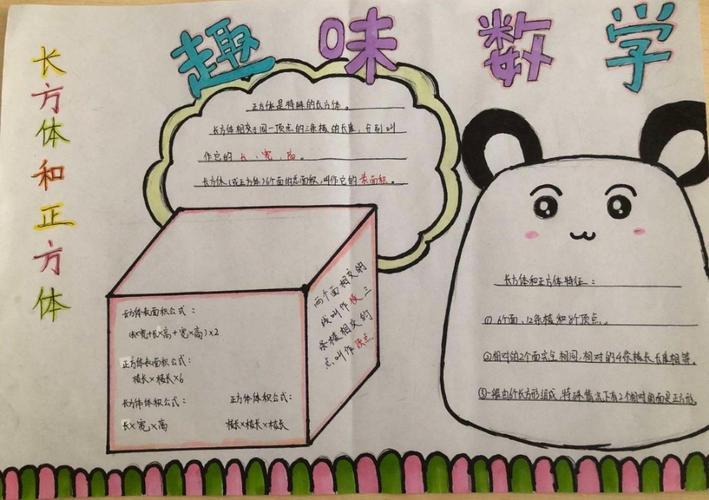 趣味数学
长方体和正方体
正方体是特殊的长方体。
长方体相交于同一顶点的三条棱的长度,分别叫
作它的长、宽、高。
长方体(或正方体)6个面的总面积,叫作它的表面积。
长方体表面积公式:
宽+长×高+宽×高)×2
正方体表面积公式:
棱长×棱长×6
长方体体积公式:
长×宽×高
正方体体积公式:
棱长×棱长×棱长
两个面相交的
线叫作棱三
条棱相交的
点叫作顶点
长方体和正方体特征:
①6个面、12条棱和8个顶点。
②相对的2个面完全相同,相对的4条棱长长度相等。
③一般由6个长方形组成,特殊情况下有2个相对的面是正方形